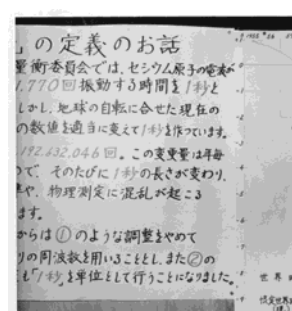 の定義のお話
量衡委員会では、セシウム原子の電波が
1.770回振動する時間を1秒と
しかし、地球の自転に合せた現在の
の数値を適当に変えて1秒を作っています。
192.632.046回。この変更量は年毎
ので、そのたびに1秒の長さが変わり、
や、物理測定に混乱が起こる
ます。
からは①のような調整をやめて
りの周波数を用いることとし、また②の
も「1秒」を単位として行うことになりました。
世界